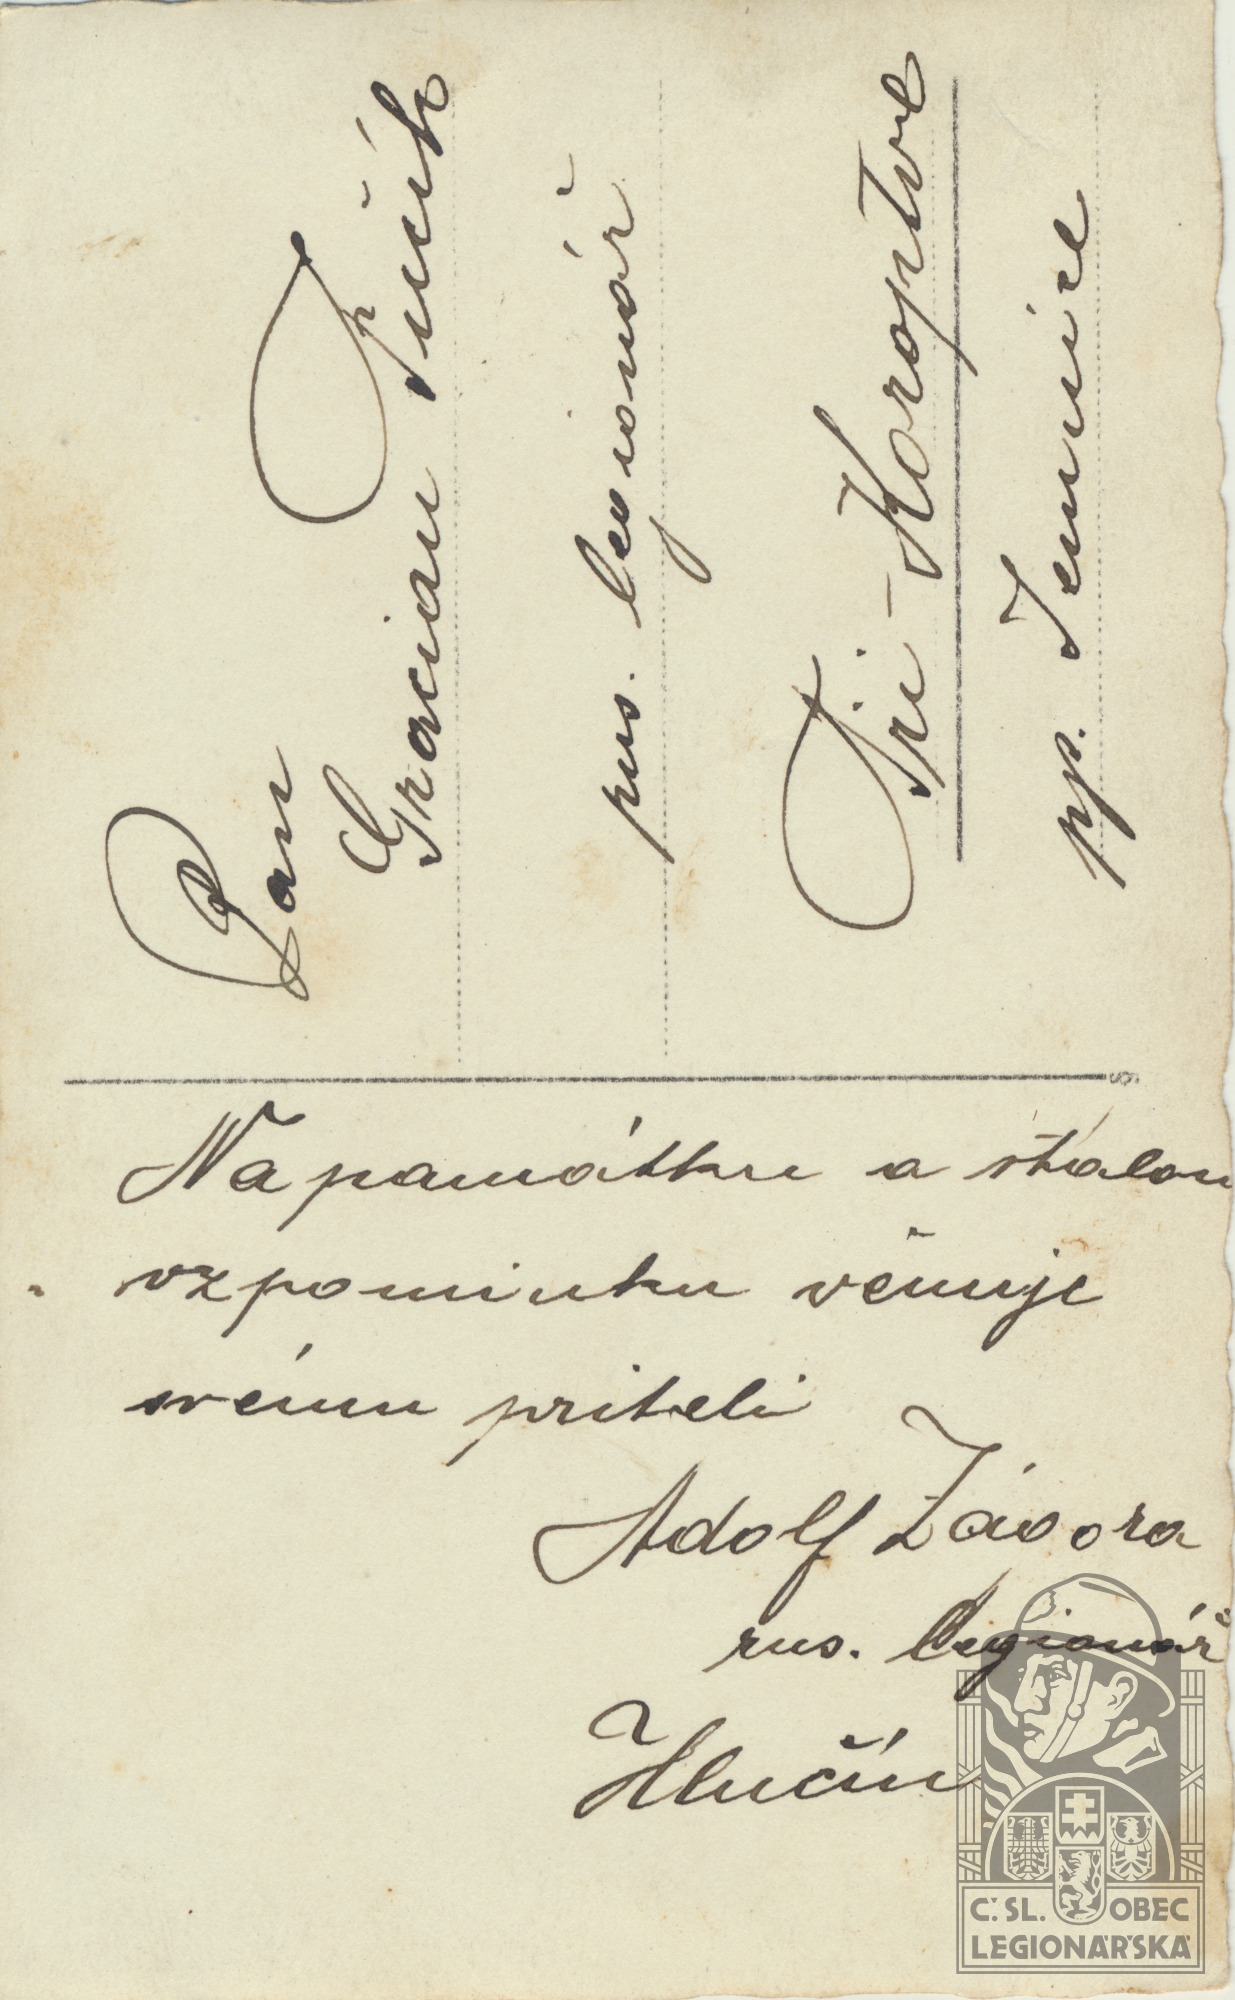 Pan
Gracian Pučík
rus. legionár̆
Tři-Koroptve
pp. Jemnice
Na památku a stalou
vzpominku věnuje
svému priteli
Adolf Závora
rus. legionář
Hlučín
Č.SL. OBEC
LEGIONÁŘSKÁ